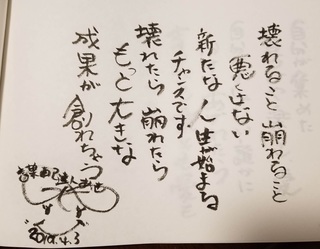 壊れること 崩れること
悪くはない
新たな人生が始まる
チャンスです
壊れたら 崩れたら
もっと大きな
成果が 創れちゃう
2019.4.3